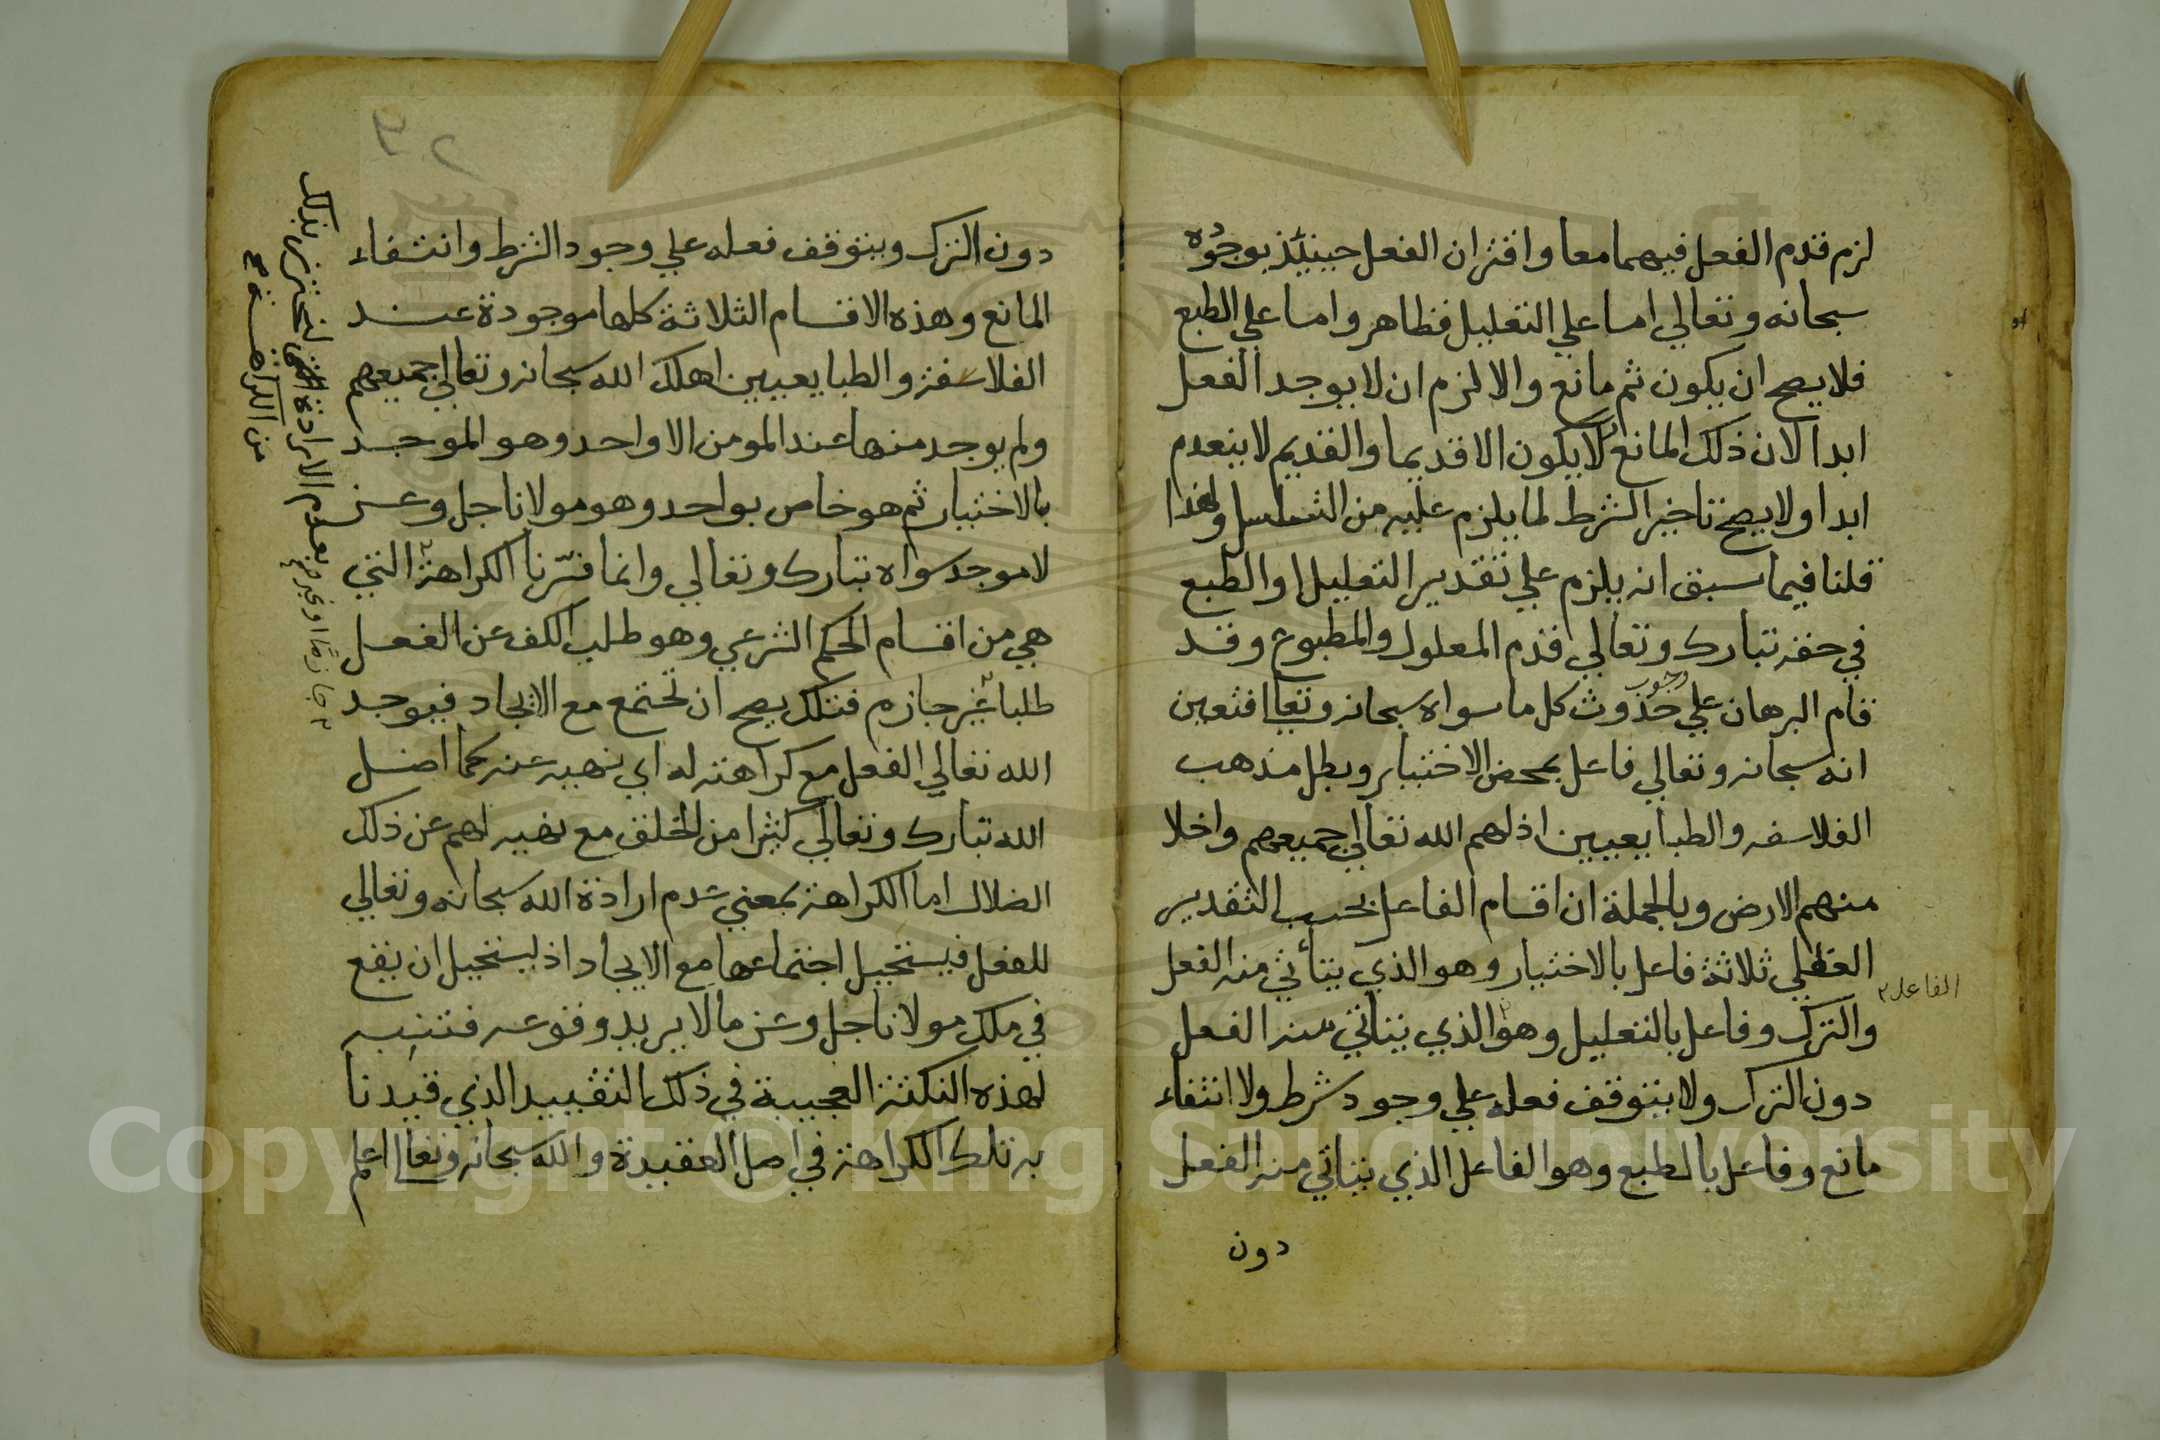 لزم قدم الفعل فيهما معا واقتران الفعل حينئذ بوجوده
سبحانه وتعالي اما علي التعليل فظاهر واما علي الطبع
فلا يصح ان يكون ثم مانع والا لزم ان لا يوجد الفعل
ابدا لان ذلك المانع لا يكون الا قديما والقديم لا ينعدم
ابدا ولا يصح تاخير الشرط لما يلزم عليه من التسلسل ولهذا
قلنا فيما سبق انه يلزم علي تقدير التعليل او الطبع
في حقه تبارك وتعالي قدم المعلول والمطبوع وقد
وجوب
قام البرهان علي حدوث كل ما سواه سبحانه وتعالي فتعين
انه سبحانه وتعالي فاعل بمحض الاختيار وبطل مذهب
الفلاسفه والطبايعيين اذلهم الله تعالي اجمعهم واخلا
منهم الارض وبالجملة ان اقسام الفاعل بحسب التقدير
العقلي ثلاثة فاعل بالاختيار وهو الذي يتأتي منه الفعل
الفاعل
والترك وفاعل بالتعليل وهو الذي يتاتي منه الفعل
دون الترك ولا يتوقف فعله علي وجود شرط ولا انتفاء
مانع وفاعل بالطبع وهو الفاعل الذي يتاتي منه الفعل
دون
٣٢
دون الترك ويتوقف فعله علي وجود الشرط وانتفاء
المانع وهذه الاقسام الثلاثة كلها موجودة عند
الفلاسفة والطبايعيين اهلك الله سبحانه وتعالي اجميعهم
ولم يوجد منها عند المومن الا واحد وهو الموجد
بالاختيار ثم هو خاص بواحد وهو مولانا جل وعز
لا موجد سواه تبارك وتعالي وانما فسرنا الكراهة التي
هي من اقسام الحكم الشرعي وهو طلب الكف عن الفعل
طلبا غير جازم فتلك يصح ان تجتمع مع الايجاد فيوجد
الله تعالي الفعل مع كراهته له اي نهيه عنه كما اضل
الله تبارك وتعالي كثيرا من الخلق مع نهيه لهم عن ذلك
الضلال اما الكراهة بمعني عدم ارادة الله سبحانه وتعالي
للفعل فيستحيل اجتماعها مع الايجاد اذ يستحيل ان يقع
في ملك مولانا جل وعز مالا يريد وقوعه فتنبه
لهذه النكتة العجيبة في ذلك التقييد الذي قيدنا
به تلك الكراهة في اصل العقيدة والله سبحانه وتعالي اعلم
بعدم الارادة لنحترز بذلك
من الكراهة
جازما او غير